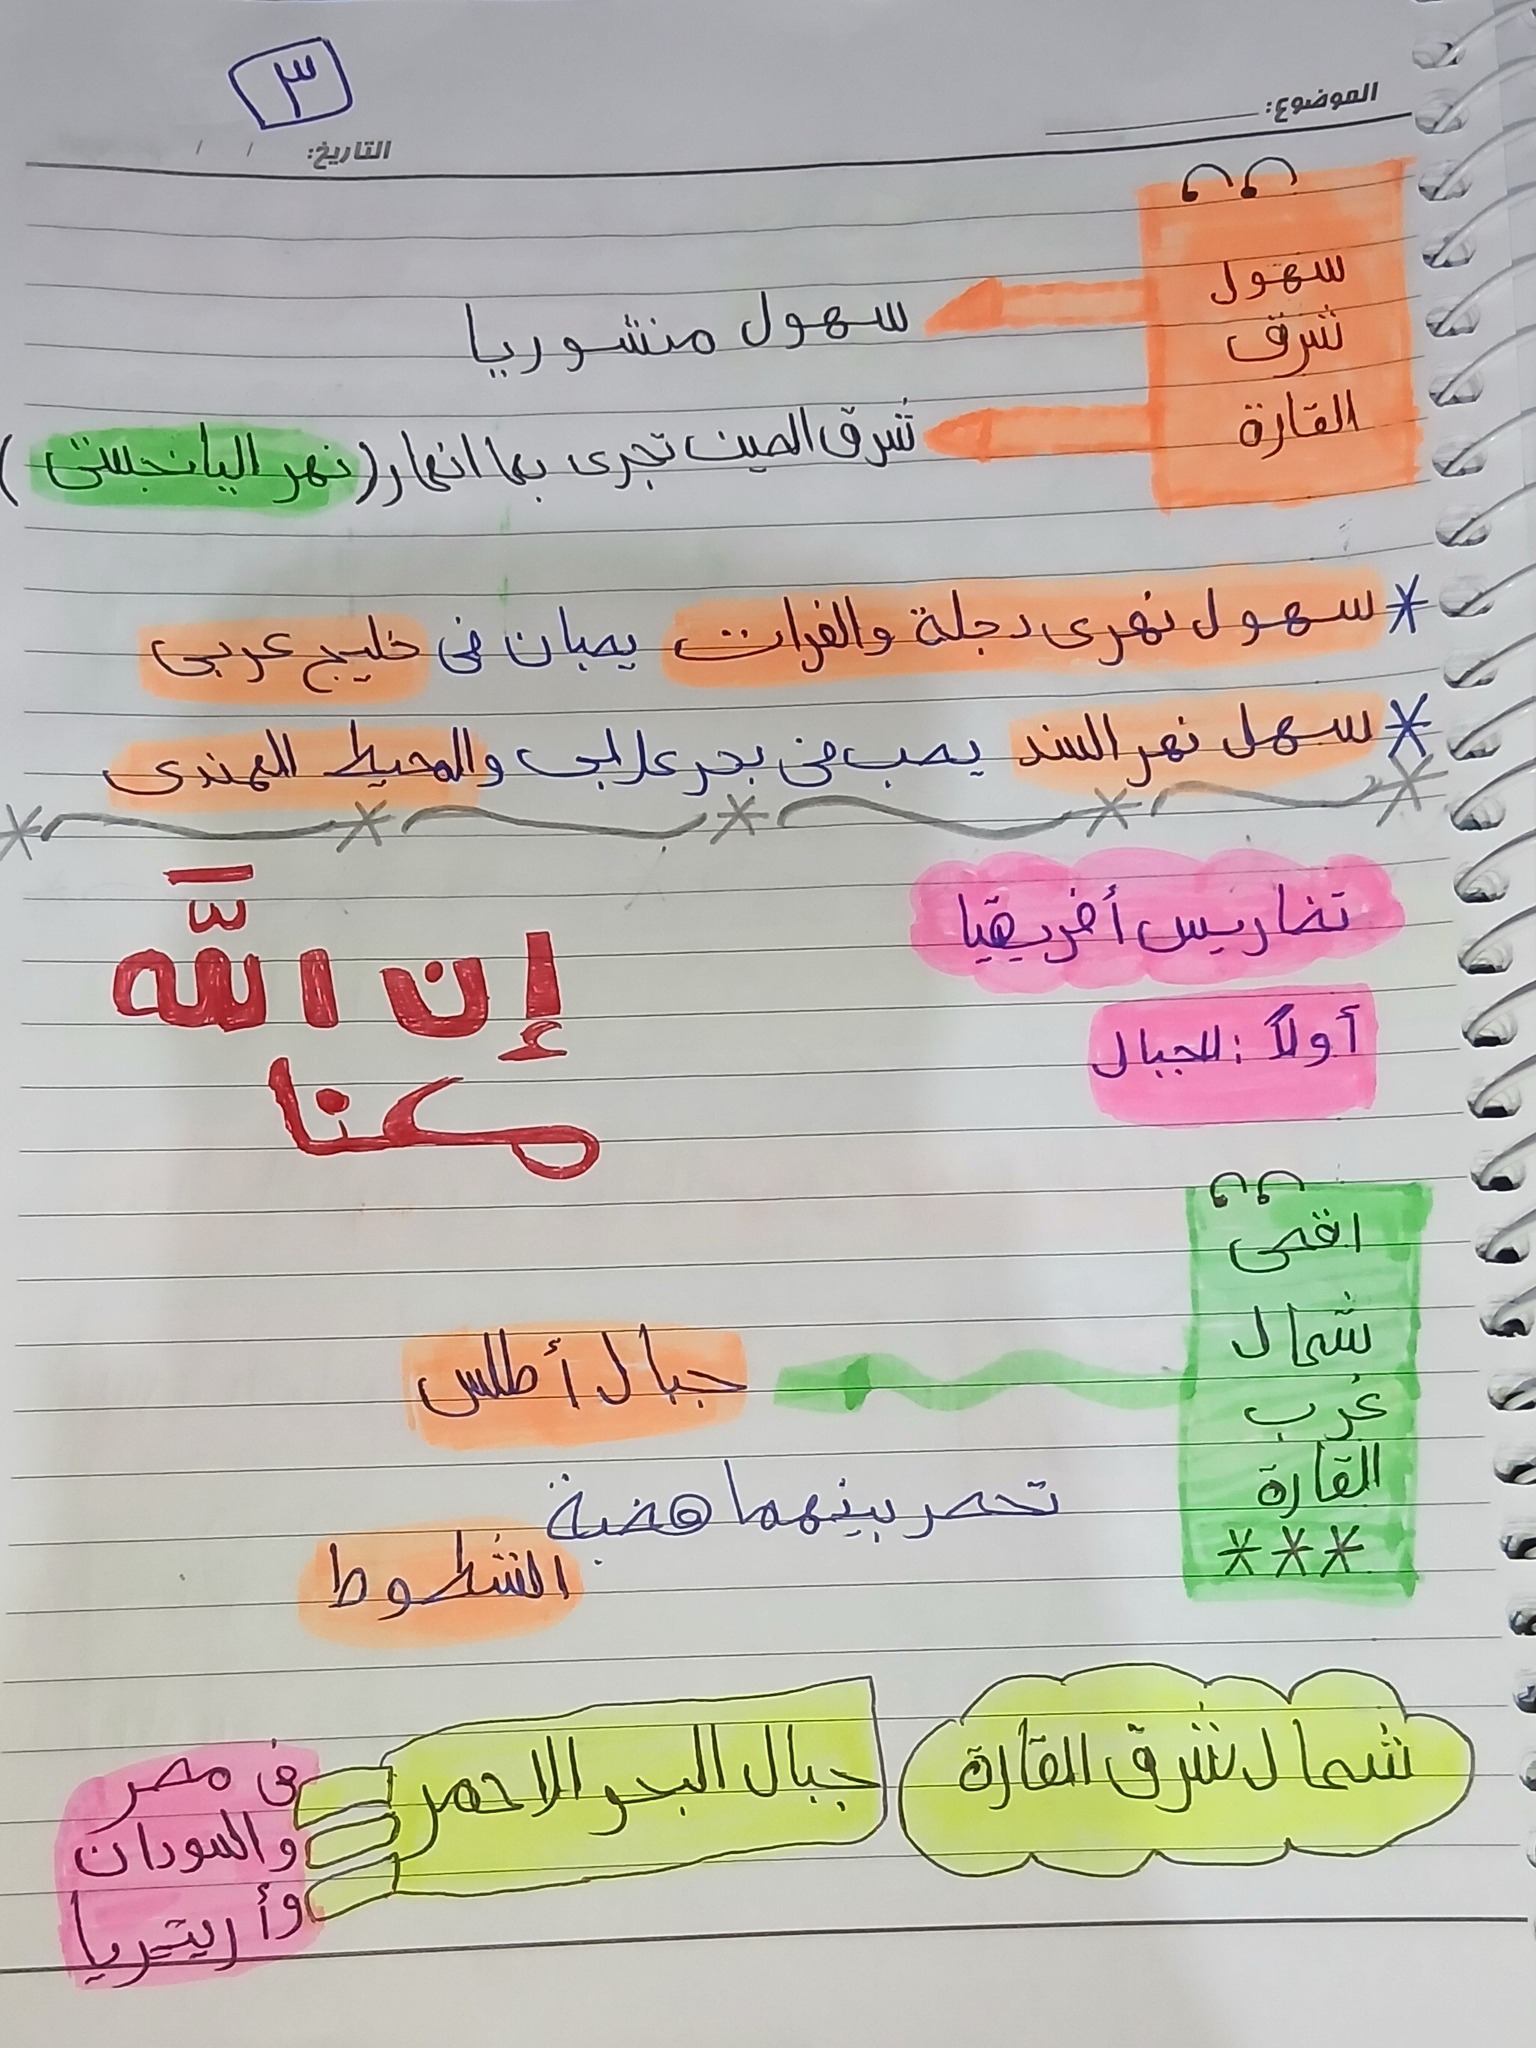 ٣
الموضوع:
التاريخ: / /
سهول
شرق
القارة
سهول منشوريا
شرق الصين تجرى بها انهار (نهر اليانجستى)
* سهول نهرى دجلة والفرات يصبان فى خليج عربى
* سهل نهر السند يصب فى بحر عرابى والمحيط الهندى
تضاريس أفريقيا
أولاً: الجبال
إن اللّٰه
معنا
اقصى
شمال
غرب
القارة
***
جبال أطلس
تحصر بينهما هضبة
الشطوط
شمال شرق القارة
جبال البحر الاحمر
فى مصر
والسودان
وأريتريا